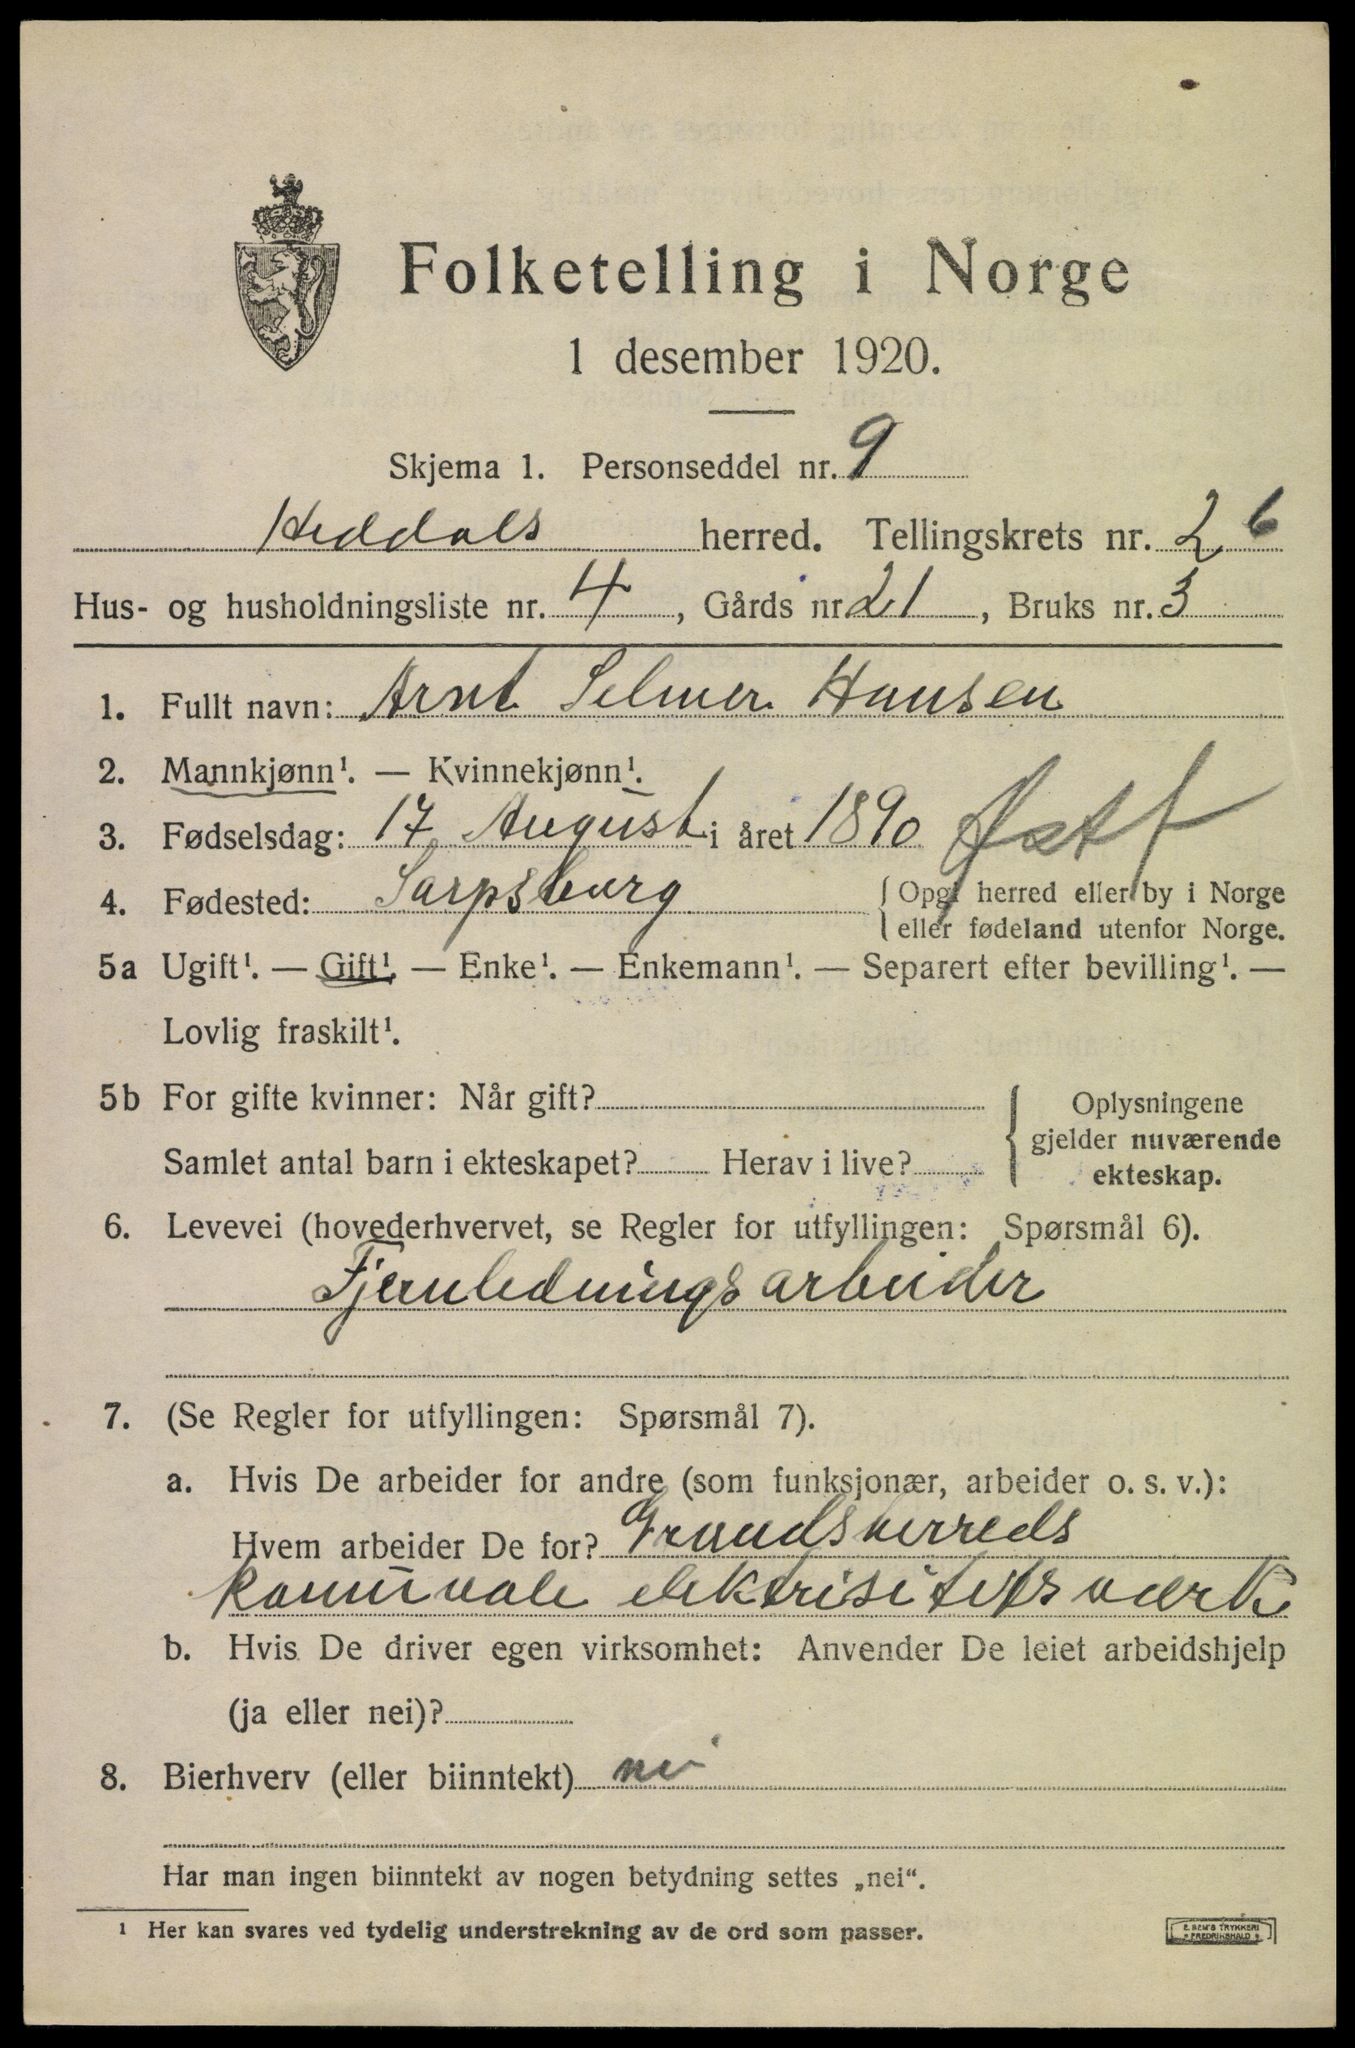 Folketelling i Norge
1 desember 1920.
Skjema 1. Personseddel nr. 9
Heddals herred. Tellingskrets nr. 2 6
Hus- og husholdningsliste nr. 4, Gårds nr 21, Bruks nr. 3
1. Fullt navn: Arnt Selmer Hansen
2. Mannkjønn¹. — Kvinnekjønn¹.
3. Fødselsdag: 17 August i året 1890 Østf
4. Fødested: Sarpsburg { Opgi herred eller by i Norge
eller fødeland utenfor Norge.
5a Ugift¹. — Gift¹. — Enke¹. — Enkemann¹. — Separert efter bevilling¹. —
Lovlig fraskilt¹.
5b For gifte kvinner: Når gift? { Oplysningene
gjelder nuværende
ekteskap.
Samlet antal barn i ekteskapet? Herav i live?
6. Levevei (hovederhvervet, se Regler for utfyllingen: Spørsmål 6).
Fjernledningsarbeider
7. (Se Regler for utfyllingen: Spørsmål 7).
a. Hvis De arbeider for andre (som funksjonær, arbeider o. s. v.):
Hvem arbeider De for? Grandsherreds
komunale elektrisitetsværk
b. Hvis De driver egen virksomhet: Anvender De leiet arbeidshjelp
(ja eller nei)?
8. Bierhverv (eller biinntekt) nei
Har man ingen biinntekt av nogen betydning settes „nei“.
¹ Her kan svares ved tydelig understrekning av de ord som passer.
E. SEM'S TRYKKERI
FREDRIKSHALD